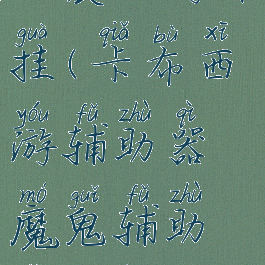 guà qiǎ bù xī
挂(卡布西
yóu fǔ zhù qì
游辅助器
mó guǐ fǔ zhù
魔鬼辅助